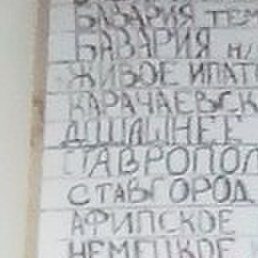 БАВАРИЯ ТЕМ
БАВАРИЯ Н/
ЖИВОЕ ИПАТ
КАРАЧАЕВСК
ДОМАШНЕЕ
СТАВРОПОЛ
СТАВГОРОД
АФИПСКОЕ
НЕМЕЦКОЕ